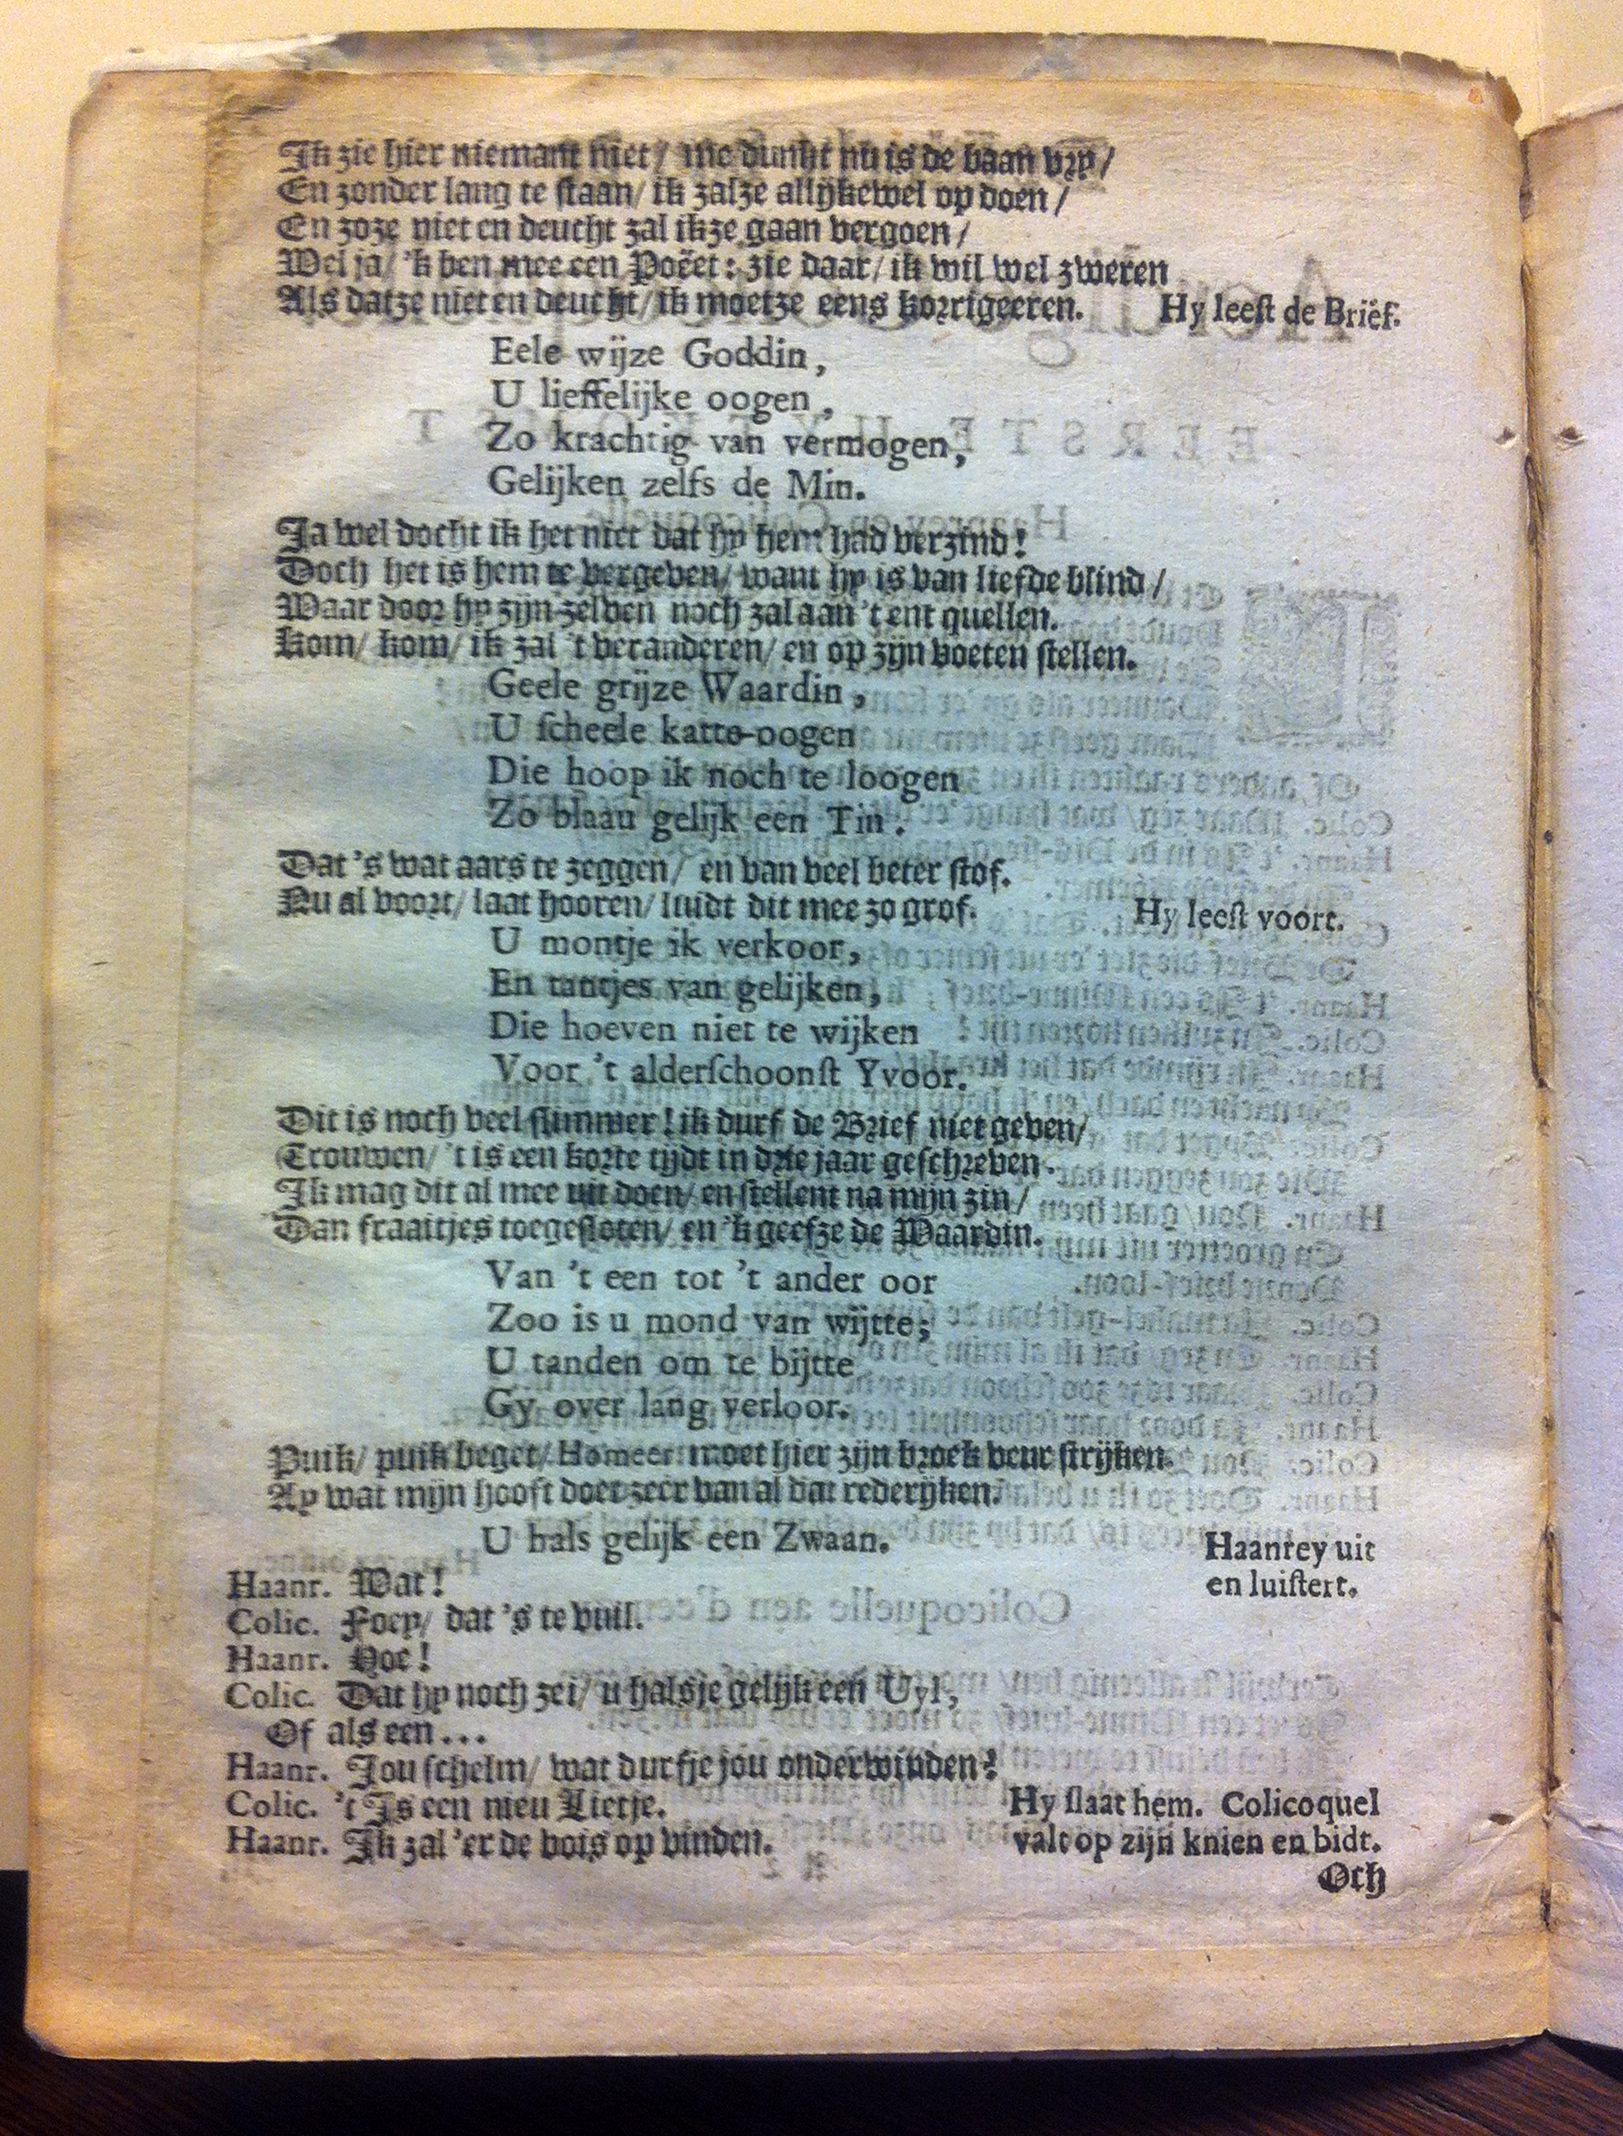 Ik zie hier niemant niet / me dunkt nu is de baan vry /
En zonder lang te staan / ik zalze allijkewel op doen /
En zoze niet en deucht zal ikze gaan vergoen /
Wel ja / 'k ben mee een Poëet : zie daar / ik wil wel zweren
Als datze niet en deucht / ik moetze eens korrigeeren. Hy leest de Brief.
Eele wijze Goddin,
U lieffelijke oogen,
Zo krachtig van vermogen,
Gelijken zelfs de Min.
Ja wel docht ik het niet dat hy hem had verzind!
Doch het is hem te vergeven / want hy is van liefde blind /
Waar door hy zijn zelven noch zal aan 't ent quellen.
Kom / kom / ik zal 't veranderen / en op zijn voeten stellen.
Geele grijze Waardin,
U scheele katte-oogen
Die hoop ik noch te loogen
Zo blaau gelijk een Tin.
Dat 's wat aars te zeggen / en van veel beter stof.
Nu al voort / laat hooren / luidt dit mee zo grof. Hy leest voort.
U montje ik verkoor,
En tantjes van gelijken,
Die hoeven niet te wijken
Voor 't alderschoonst Yvoor.
Dit is noch veel slimmer! ik durf de Brief niet geven /
Trouwen / 't is een korte tijdt in drie jaar geschreven.
Ik mag dit al mee uit doen / en stellent na mijn zin /
Dan fraaitjes toegesloten / en 'k geefze de Waardin.
Van 't een tot 't ander oor
Zoo is u mond van wijtte;
U tanden om te bijtte
Gy over lang verloor.
Puik / puik beget / Homeer moet hier zijn broek veur strijken.
Ay wat mijn hooft doet zeer van al dat rederijken.
U hals gelijk een Zwaan. Haanrey uit
en luistert.
Haanr. Wat!
Colic. Foey / dat 's te vuil.
Haanr. Hoe!
Colic. Dat hy noch zei / u halsje gelijk een Uyl,
Of als een...
Haanr. Jou schelm / wat durfje jou onderwinden?
Colic. 't Is een nieu Lietje. Hy slaat hem. Colicoquel
Haanr. Ik zal 'er de vois op vinden. valt op zijn knien en bidt.
Och